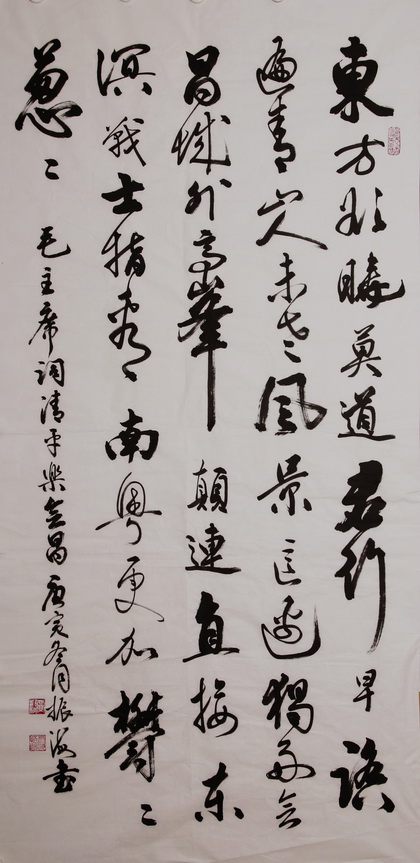 東方欲曉莫道君行早踏
遍青山人未老風景這邊獨好会
昌城外高峯顛連直接东
溟戰士指看南粤更加鬱々
葱々
毛主席词清平樂会昌庚寅冬月振海书